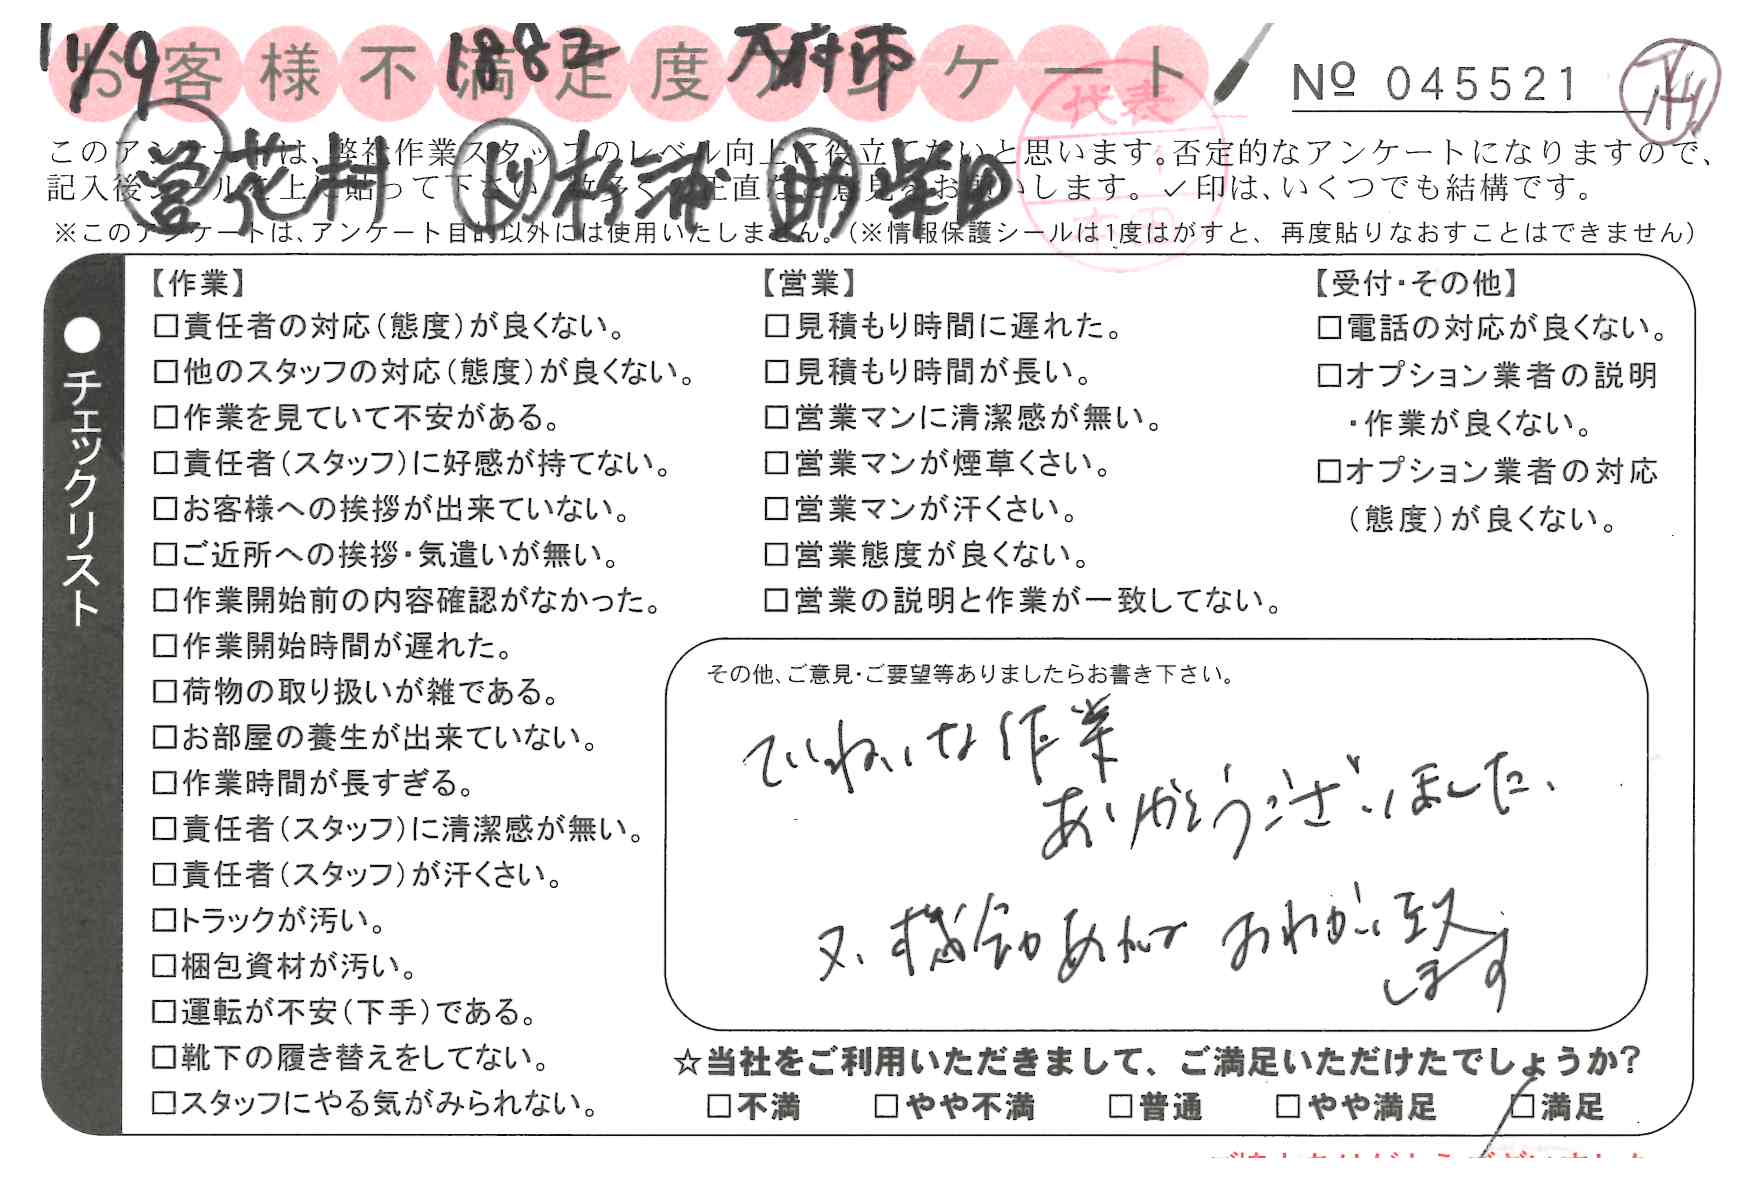 11/9 1882 大府市
お客様不満足度アンケート
№ 045521
代表
本田
このアンケートは、弊社作業スタッフのレベル向上に役立てたいと思います。否定的なアンケートになりますので、
記入後シールを上に貼って下さい。数多くの正直なご意見をお願いします。✓印は、いくつでも結構です。
営 花村 リ 杉浦 助 柴田
※このアンケートは、アンケート目的以外には使用いたしません。(※情報保護シールは1度はがすと、再度貼りなおすことはできません)
●チェックリスト
【作業】
□責任者の対応(態度)が良くない。
□他のスタッフの対応(態度)が良くない。
□作業を見ていて不安がある。
□責任者(スタッフ)に好感が持てない。
□お客様への挨拶が出来ていない。
□ご近所への挨拶・気遣いが無い。
□作業開始前の内容確認がなかった。
□作業開始時間が遅れた。
□荷物の取り扱いが雑である。
□お部屋の養生が出来ていない。
□作業時間が長すぎる。
□責任者(スタッフ)に清潔感が無い。
□責任者(スタッフ)が汗くさい。
□トラックが汚い。
□梱包資材が汚い。
□運転が不安(下手)である。
□靴下の履き替えをしてない。
□スタッフにやる気がみられない。
【営業】
□見積もり時間に遅れた。
□見積もり時間が長い。
□営業マンに清潔感が無い。
□営業マンが煙草くさい。
□営業マンが汗くさい。
□営業態度が良くない。
□営業の説明と作業が一致してない。
【受付・その他】
□電話の対応が良くない。
□オプション業者の説明
・作業が良くない。
□オプション業者の対応
(態度)が良くない。
その他、ご意見・ご要望等ありましたらお書き下さい。
ていねいな作業
ありがとうございました、
又、機会があれば おねがい致
します
☆当社をご利用いただきまして、ご満足いただけたでしょうか?
□不満 □やや不満 □普通 □やや満足 □満足